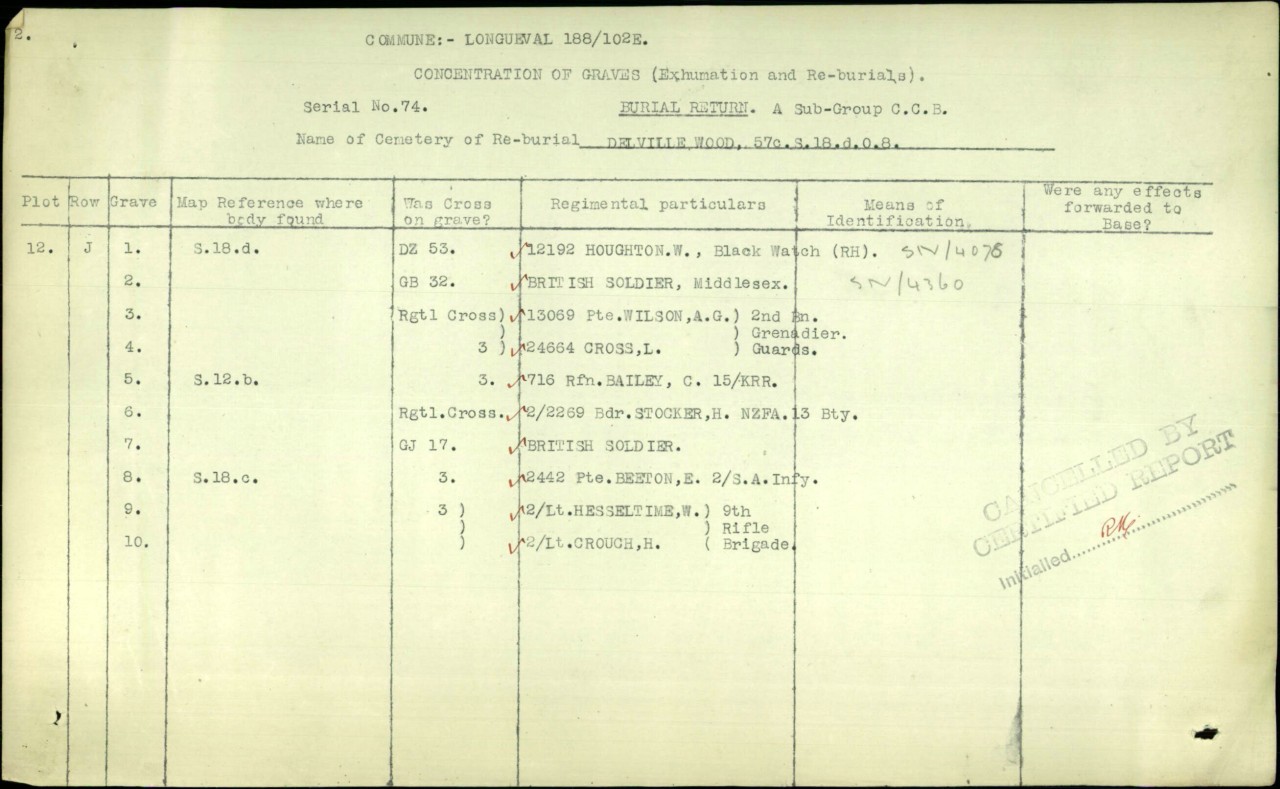 2.
COMMUNE:- LONGUEVAL 188/102E.
CONCENTRATION OF GRAVES (Exhumation and Re-burials).
Serial No.74. BURIAL RETURN. A Sub-Group C.C.B.
Name of Cemetery of Re-burial DELVILLE WOOD, 57c.S.18.d.0.8.
Plot Row Grave Map Reference where body found Was Cross on grave? Regimental particulars Means of Identification. Were any effects forwarded to Base?
12. J 1. S.18.d. DZ 53. 12192 HOUGHTON.W., Black Watch (RH). SN/4078
2. GB 32. BRITISH SOLDIER, Middlesex. SN/4360
3. Rgtl Cross) 13069 Pte.WILSON,A.G.) 2nd Bn.
) ) Grenadier.
4. 3 ) 24664 CROSS,L. ) Guards.
5. S.12.b. 3. 716 Rfn.BAILEY, C. 15/KRR.
6. Rgtl.Cross. 2/2269 Bdr.STOCKER,H. NZFA.13 Bty.
7. GJ 17. BRITISH SOLDIER.
8. S.18.c. 3. 2442 Pte.BEETON,E. 2/S.A.Infy.
9. 3 ) 2/Lt.HESSELTIME,W.) 9th
) ) Rifle
10. ) 2/Lt.CROUCH,H. ( Brigade.
CANCELLED BY
CERTIFIED REPORT
Initialled